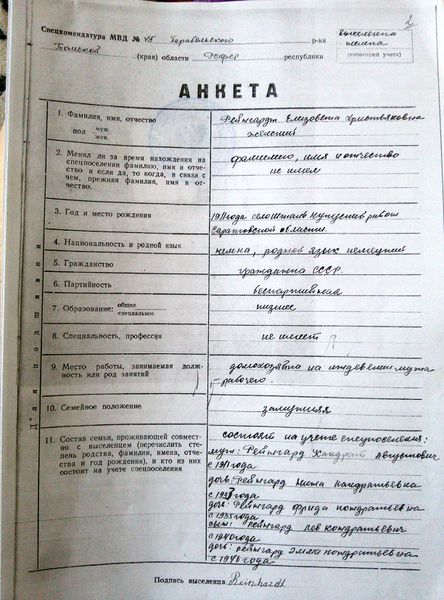 1
Спецкомендатура МВД № 45 р-на
Томской (края) области РСФСР республики
Выселенка
немка
(категория учета)
АНКЕТА
1. Фамилия, имя, отчество
пол муж. жен.
Рейнгардт Елизовета Христьяновна
женский
2. Менял ли за время нахождения на
спецпоселении фамилию, имя и отче-
ство и если да, то когда, в связи с
чем, прежняя фамилия, имя и от-
чество.
фамилию, имя и отчество
не менял
3. Год и место рождения
1911 года село
Саратовской области.
4. Национальность и родной язык
немка, родной язык немецкий
5. Гражданство
гражданка СССР.
6. Партийность
беспартийная
7. Образование: общее специальное
низшее
8. Специальность, профессия
не имеет
9. Место работы, занимаемая долж-
ность или род занятий
домохозяйка на иждевении мужа
рабочего.
10. Семейное положение
замужняя
11. Состав семьи, проживающей совмест-
но с выселенцем (перечислить сте-
пень родства, фамилии, имена, отчества
и год рождения), и кто из них
состоит на учете спецпоселения
состоят на учете спецпоселения:
муж: Рейнгард Кандрат Августович
с 1911 года
дочь: Рейнгард Нина Кандратьевна
с года
дочь: Рейнгард Фрида Кондратьевна
с года
сын: Рейнгард Лев Кондратьевич
с 1940 года
дочь: Рейнгард Эмма Кондратьевна
с 1946 года
Для подшивки
Подпись выселенца Reinhardt